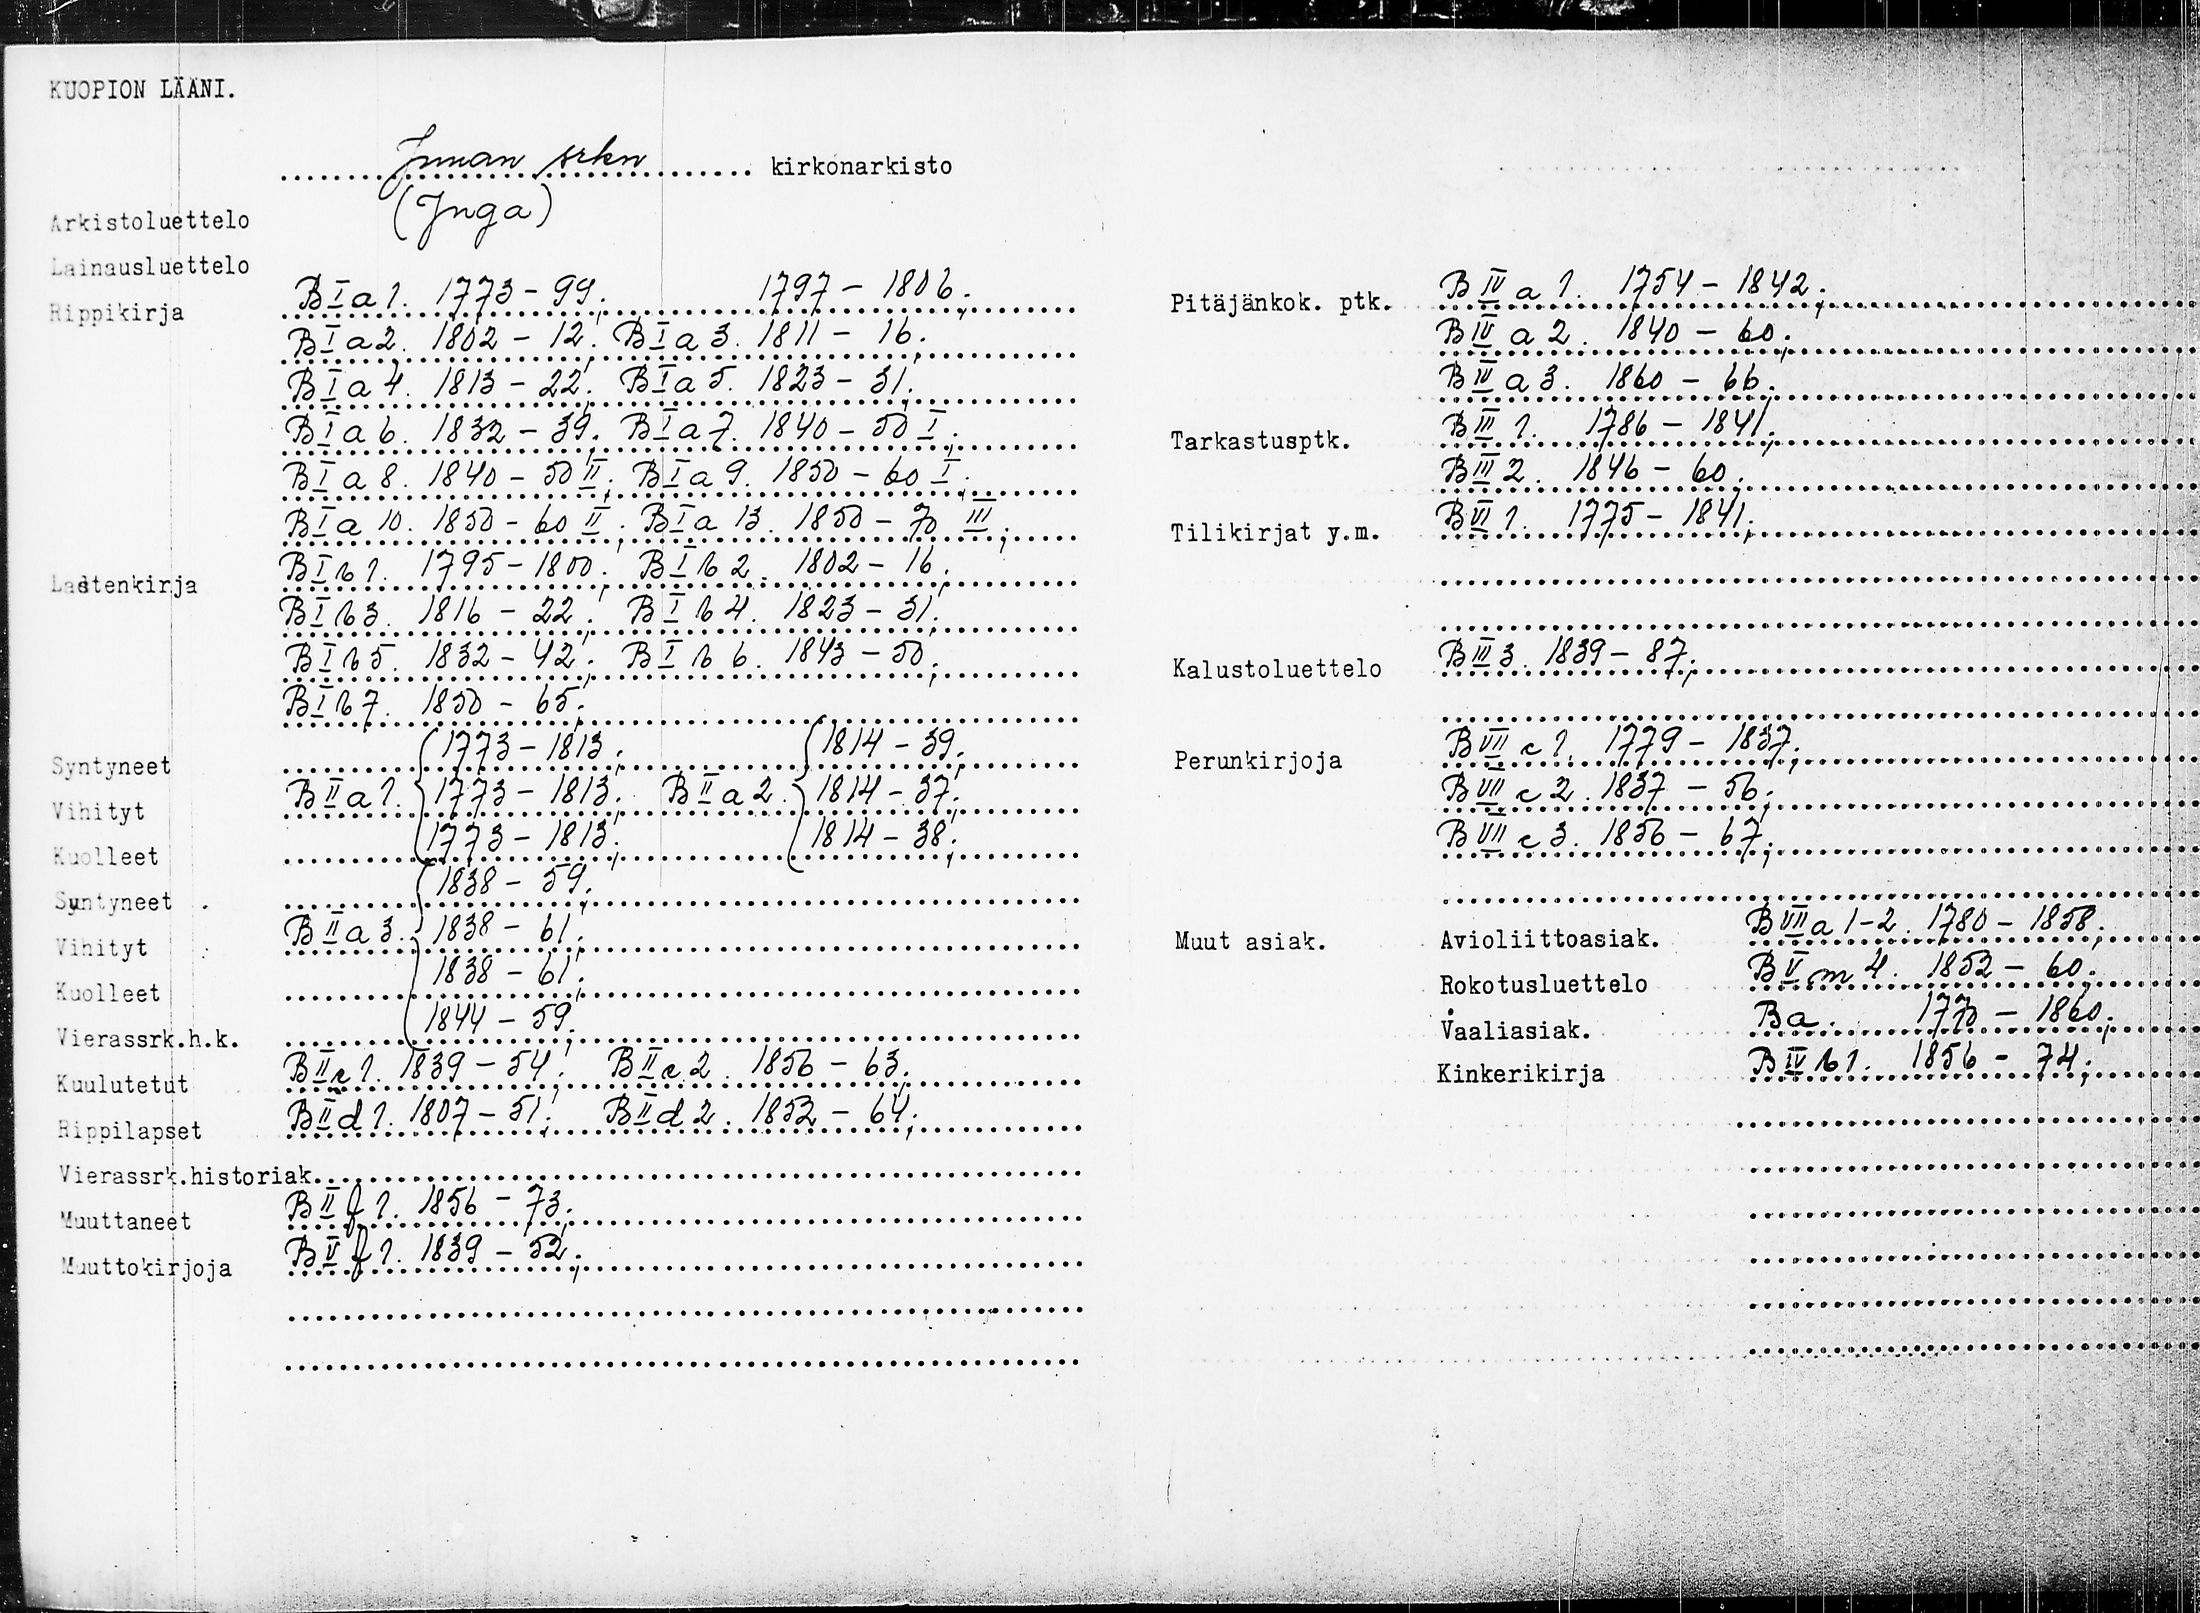 KUOPION LÄÄNI.
Juuan srkn kirkonarkisto
(Juga)
Arkistoluettelo
Lainausluettelo
Rippikirja B I a 1. 1773 - 99; 1797 - 1806;
B I a 2. 1802 - 12; B I a 3. 1811 - 16;
B I a 4. 1813 - 22; B I a 5. 1823 - 31;
B I a 6. 1832 - 39; B I a 7. 1840 - 50 I;
B I a 8. 1840 - 50 II; B I a 9. 1850 - 60 I;
B I a 10. 1850 - 60 II; B I a 13. 1850 - 70 III;
Lastenkirja B I b 1. 1795 - 1800; B I b 2. 1802 - 16;
B I b 3. 1816 - 22; B I b 4. 1823 - 31;
B I b 5. 1832 - 42; B I b 6. 1843 - 50;
B I b 7. 1850 - 65;
Syntyneet 1773 - 1813; 1814 - 39;
Vihityt B II a 1. 1773 - 1813; B II a 2. 1814 - 37;
Kuolleet 1773 - 1813; 1814 - 38;
Syntyneet 1838 - 59;
Vihityt B II a 3. 1838 - 61;
Kuolleet 1838 - 61;
Vierassrk.h.k. 1844 - 59;
Kuulutetut B II c 1. 1839 - 54; B II c 2. 1856 - 63;
Rippilapset B II d 1. 1807 - 51; B II d 2. 1852 - 64;
Vierassrk.historiak.
Muuttaneet B II f 1. 1856 - 73;
Muuttokirjoja B V f 1. 1839 - 52;
Pitäjänkok. ptk. B IV a 1. 1754 - 1842;
B IV a 2. 1840 - 60;
B IV a 3. 1860 - 66;
Tarkastusptk. B III 1. 1786 - 1841;
B III 2. 1846 - 60;
Tilikirjat y.m. B VI 1. 1775 - 1841;
Kalustoluettelo B III 3. 1839 - 87;
Perunkirjoja B VII c 1. 1779 - 1837;
B VII c 2. 1837 - 56;
B VII c 3. 1856 - 67;
Muut asiak. Avioliittoasiak. B VII a 1-2. 1780 - 1858;
Rokotusluettelo B V m 4. 1852 - 60;
Vaaliasiak. B a. 1770 - 1860;
Kinkerikirja B IV b 1. 1856 - 74;